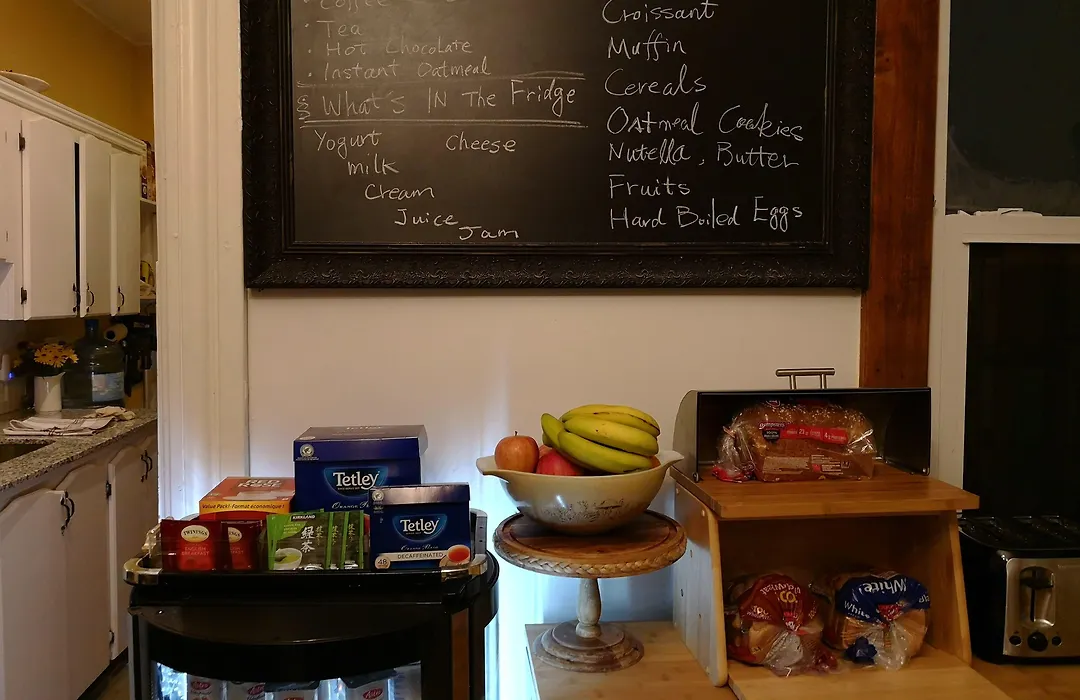 · Coffee
· Tea
· Hot Chocolate
· Instant Oatmeal
§ What's IN The Fridge
Yogurt Cheese
milk
Cream
Juice
Jam
Croissant
Muffin
Cereals
Oatmeal Cookies
Nutella, Butter
Fruits
Hard Boiled Eggs
Tetley
Value Pack! Format économique!
TWININGS
ENGLISH BREAKFAST
KIRKLAND
緑茶
Tetley
DECAFFEINATED
48
White!
White